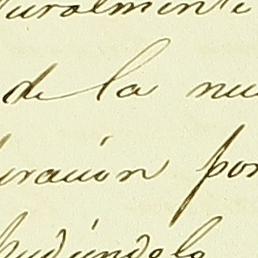 turalmente
de la nu
uración por
pudiéndolo